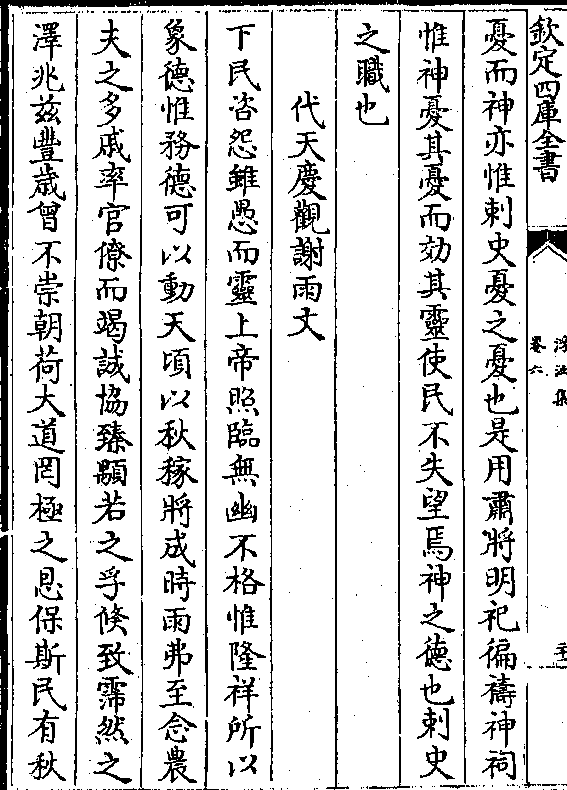 欽定四庫全書
卷六
憂而神亦惟刺史憂之憂也是用肅將明祀徧禱神祠
惟神憂其憂而効其靈使民不失望焉神之德也刺史
之職也
代天慶觀謝雨文
下民咨怨雖愚而靈上帝照臨無幽不格惟隆祥所以
象德惟務德可以動天頃以秋稼將成時雨弗至念農
夫之多戚率官僚而竭誠協臻顒若之孚倏致霈然之
澤兆兹豐歲曾不崇朝荷大道罔極之恩保斯民有秋